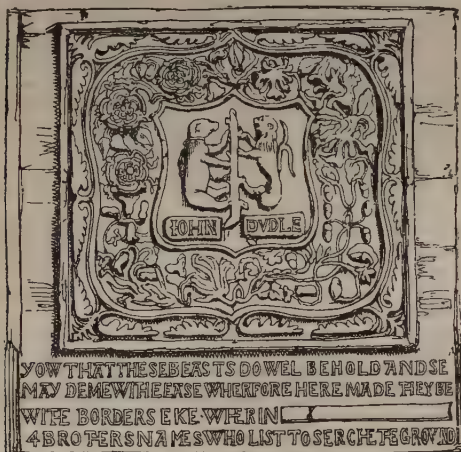 IOHN DVDLE
YOW THAT THESE BEASTS DO WEL BEHOLD AND SE
MAY DEME WITH EASE WHERFORE HERE MADE THEY BE
WITHE BORDERS EKE WHERIN
4 BROTHERS NAMES WHO LIST TO SERCHE THE GROVND